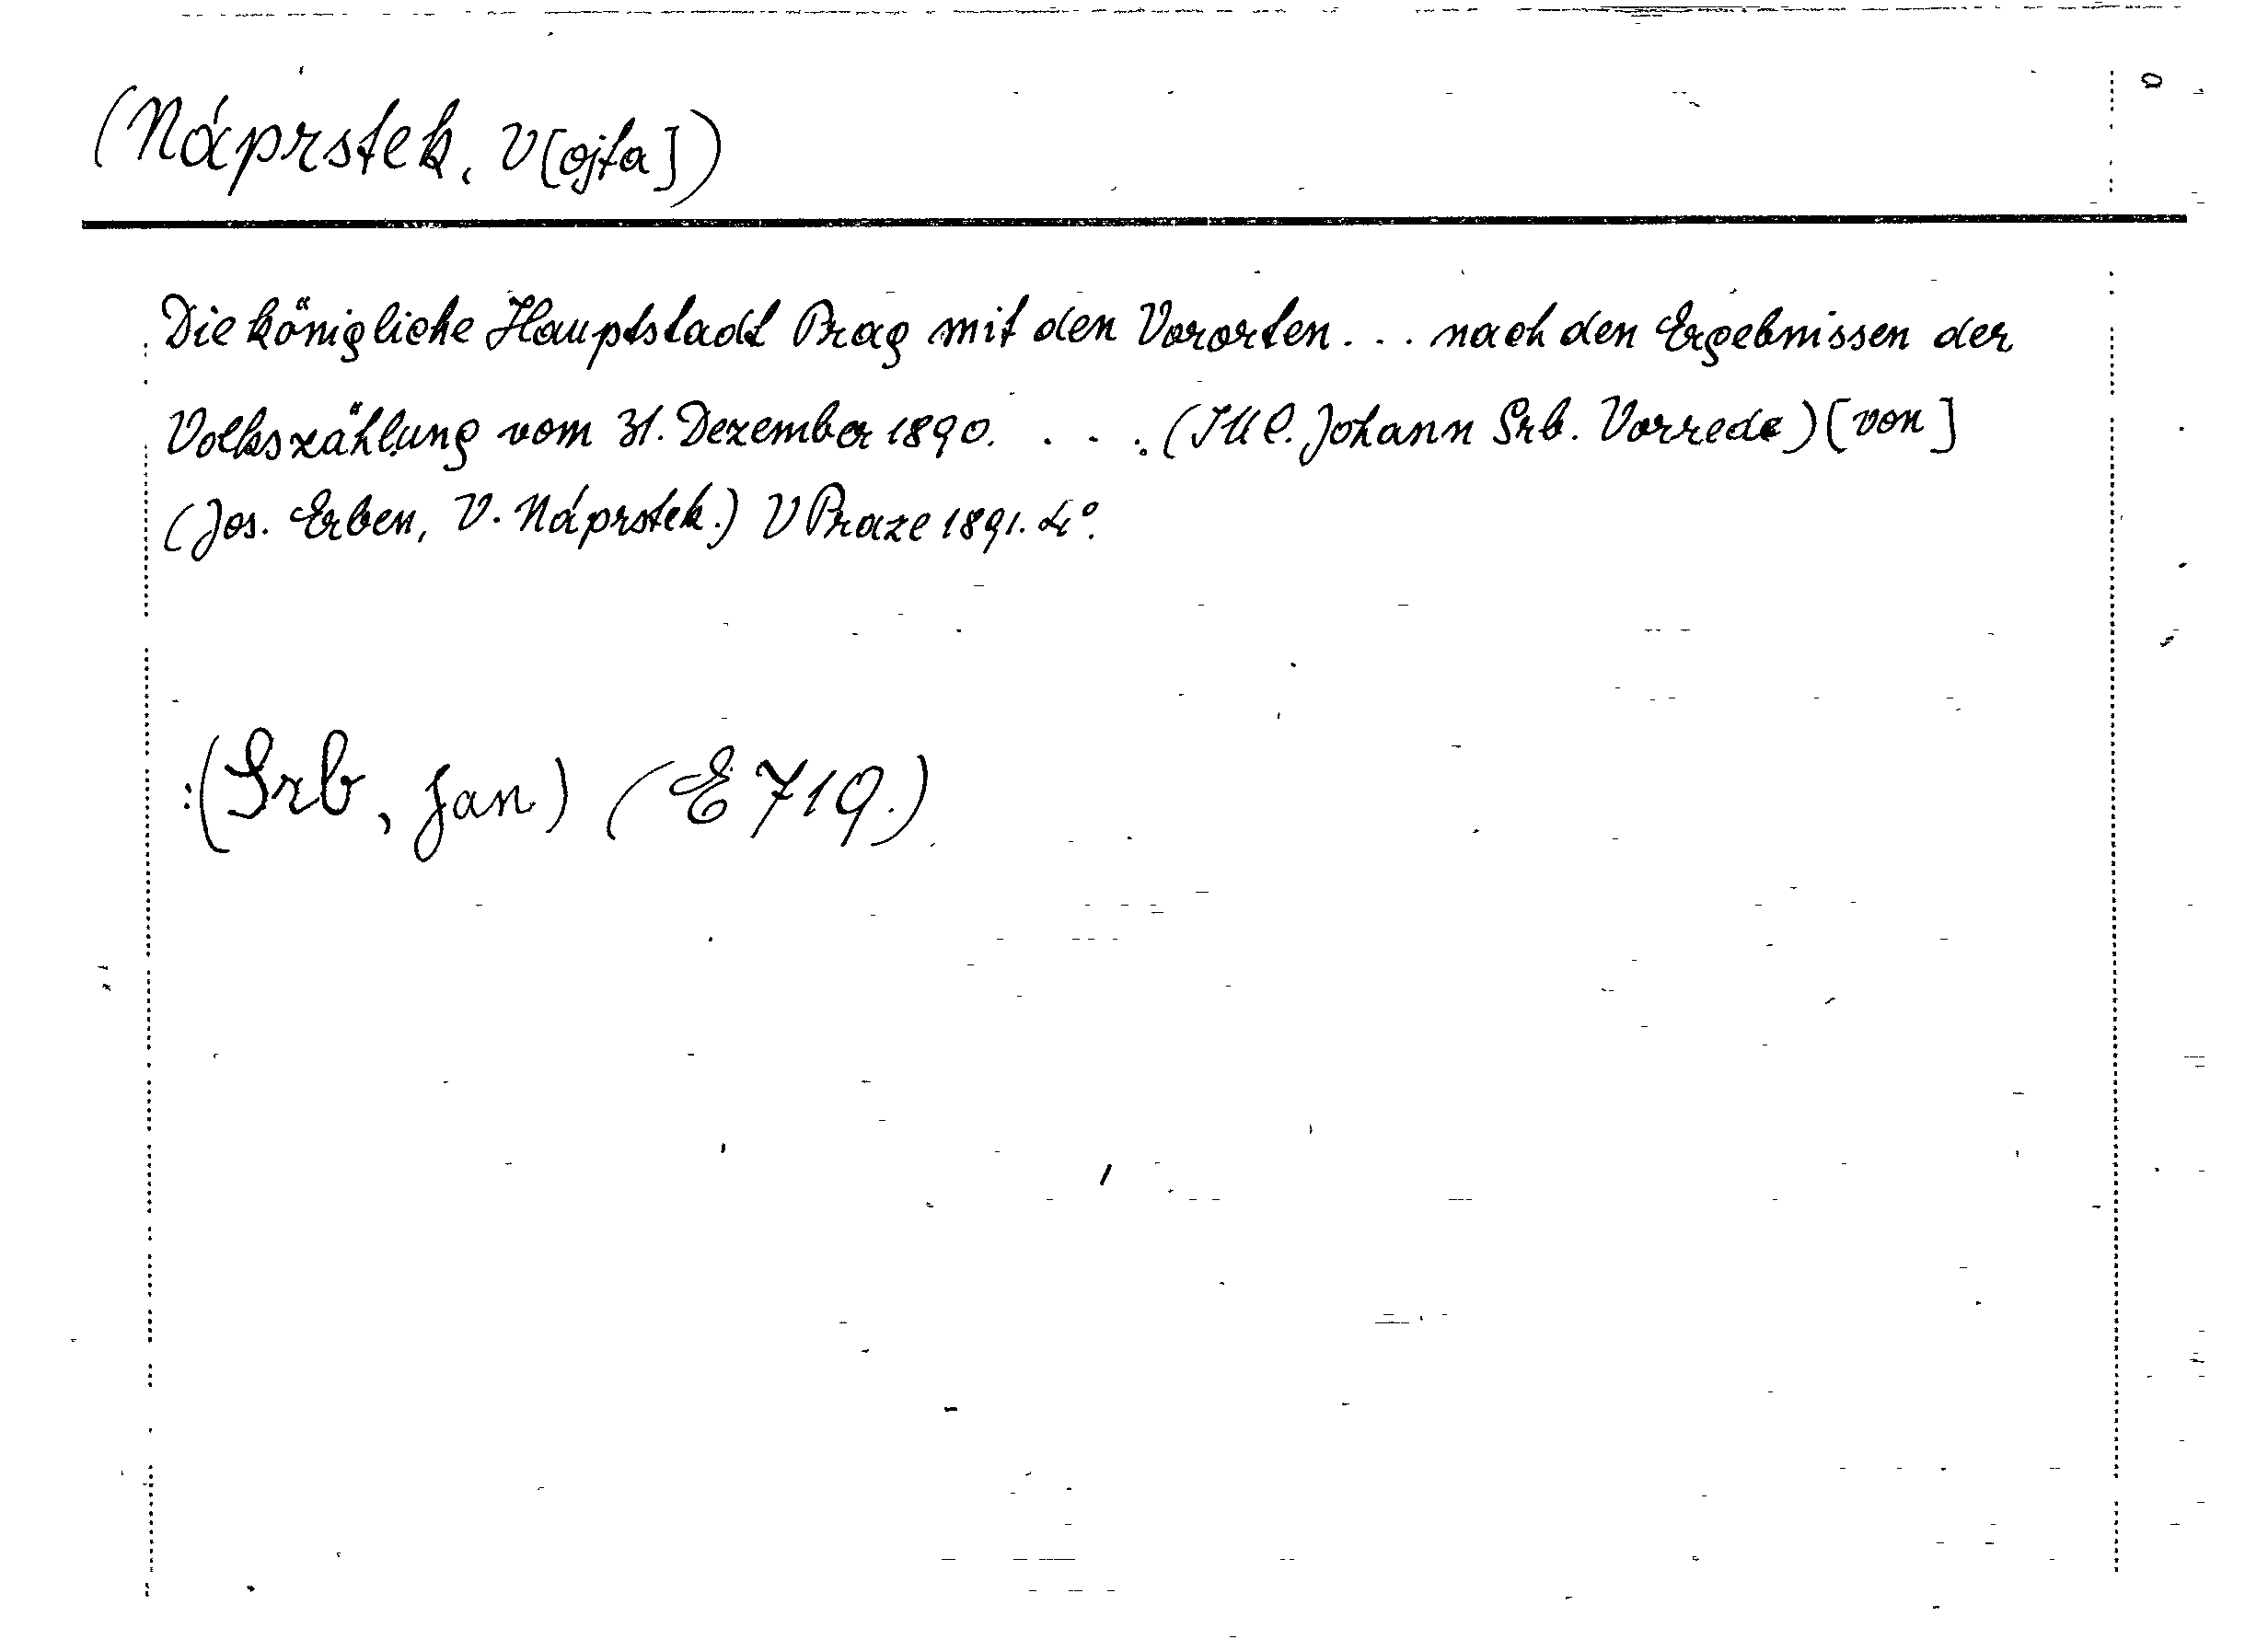 (Náprstek, V[ojta])
Die königliche Hauptstadt Prag mit den Vororten... nach den Ergebnissen der
Volkszählung vom 31. Dezember 1890. . . . (JUC. Johann Srb. Vorrede) [von]
(Jos. Erben, V. Náprstek.) V Praze 1891. 4°.
:(Srb, Jan) (E 719.)